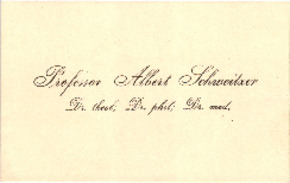 Professor Albert Schweitzer
Dr. theol; Dr. phil; Dr. med.